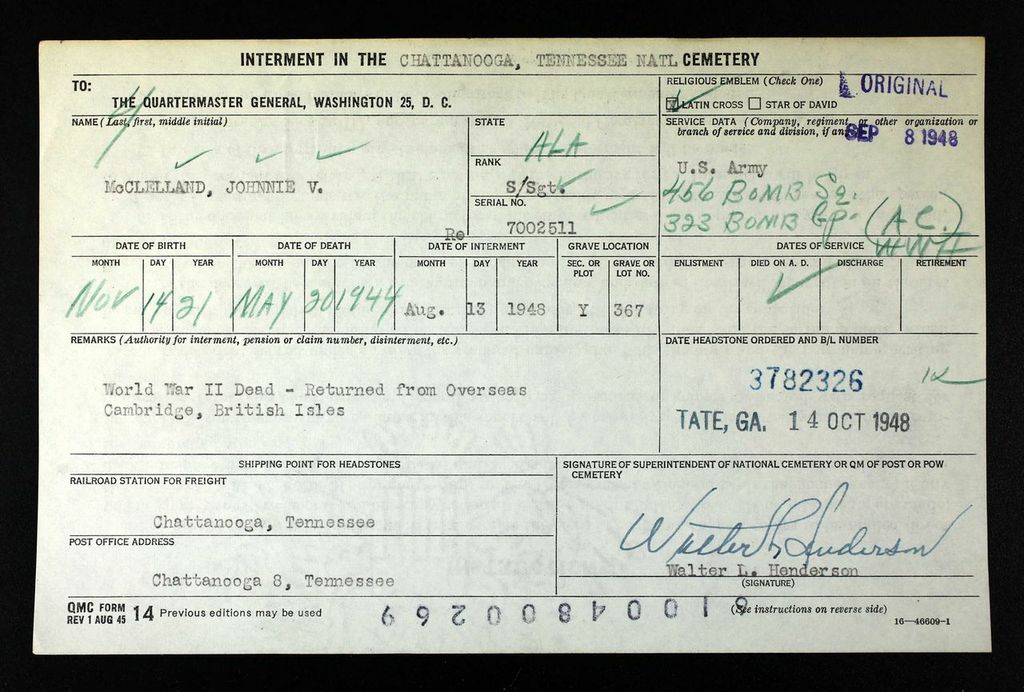 INTERMENT IN THE CHATTANOOGA, TENNESSEE NATL CEMETERY
TO:
THE QUARTERMASTER GENERAL, WASHINGTON 25, D. C.
RELIGIOUS EMBLEM (Check One)
LATIN CROSS STAR OF DAVID
ORIGINAL
NAME (Last, first, middle initial)
McCLELLAND, JOHNNIE V.
STATE
ALA
RANK
S/Sgt.
SERIAL NO.
7002511
SERVICE DATA (Company, regiment, or other organization or
branch of service and division, if any)
SEP 8 1948
U.S. Army
456 BOMB Sq.
323 BOMB Gp. (A.C.)
WWII
DATE OF BIRTH
MONTH DAY YEAR
Nov 14 21
DATE OF DEATH
MONTH DAY YEAR
MAY 20 1944
Re
DATE OF INTERMENT
MONTH DAY YEAR
Aug. 13 1948
GRAVE LOCATION
SEC. OR PLOT
GRAVE OR LOT NO.
Y 367
DATES OF SERVICE
ENLISTMENT DIED ON A. D. DISCHARGE RETIREMENT
REMARKS (Authority for interment, pension or claim number, disinterment, etc.)
World War II Dead - Returned from Overseas
Cambridge, British Isles
DATE HEADSTONE ORDERED AND B/L NUMBER
3782326
TATE, GA. 14 OCT 1948
SHIPPING POINT FOR HEADSTONES
RAILROAD STATION FOR FREIGHT
Chattanooga, Tennessee
POST OFFICE ADDRESS
Chattanooga 8, Tennessee
SIGNATURE OF SUPERINTENDENT OF NATIONAL CEMETERY OR QM OF POST OR POW
CEMETERY
Walter L. Henderson
Walter L. Henderson
(SIGNATURE)
QMC FORM
REV 1 AUG 45 14 Previous editions may be used
(See instructions on reverse side)
16—46609-1